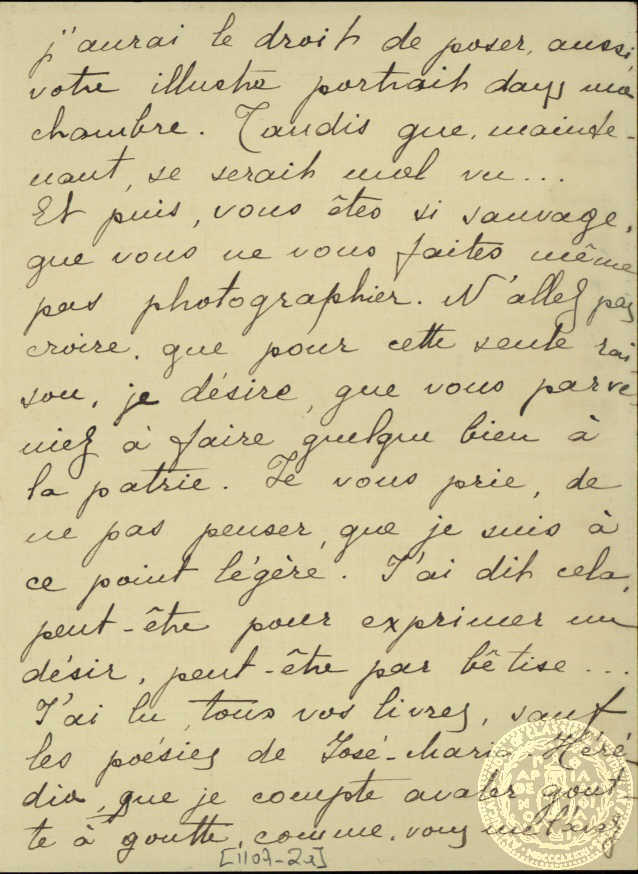 j'aurai le droit de poser, aussi,
votre illustre portrait dans ma
chambre. Tandis que, mainte-
nant, se serait mal vu...
Et puis, vous êtes si sauvage,
que vous ne vous faites même
pas photographier. N'allez pas
croire, que pour cette seule rai
son, je désire, que vous parve
niez à faire quelque bien à
la patrie. Je vous prie, de
ne pas penser, que je suis à
ce point légère. J'ai dit cela,
peut-être pour exprimer un
désir, peut-être par bêtise...
J'ai lu, tous vos livres, sauf
les poésies de José-Maria Héré-
dia, que je compte avaler gout-
te à goutte, comme, vous
[1107-2a]